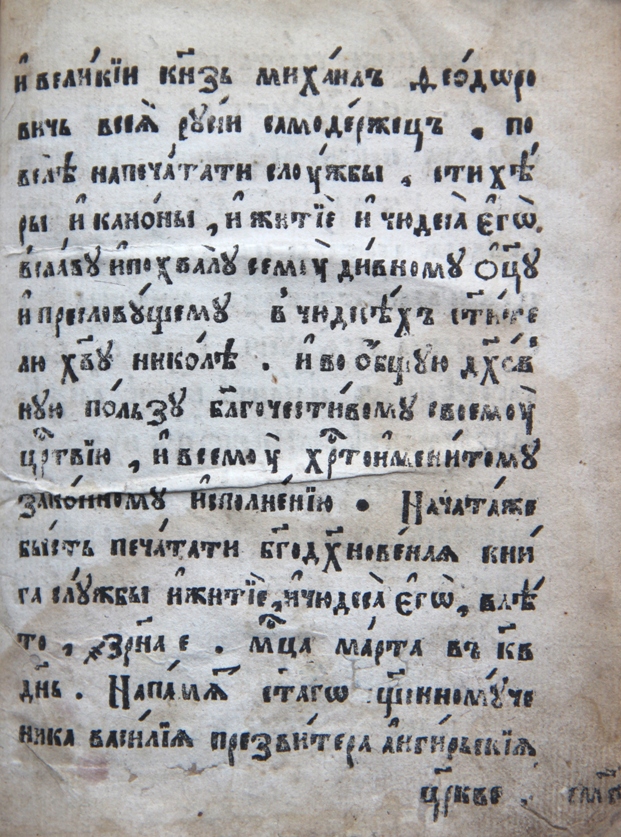 и҆ вели́кїи кн҃зь миха́илъ ѳео́дѡро
вичь всеѧ̀ рѹ́сїи самоде́ржецъ . по
велѣ̀ напеча́тати слоу́жбы , стихѣ́
ры и҆ кано́ны , и҆ жи́тїе и҆ чюдеса̀ є҆гѡ̀,
в славꙋ и҆ похвалꙋ̀ семꙋ̀ ди́вномꙋ ѻ҆ц҃ꙋ̀
и҆ пресловꙋ́щемꙋ в чюдесѣ́хъ ст҃и́те
лю хв҃ꙋ нико́лѣ . и҆ во о҆́бщꙋю дх҃о́в
нꙋю по́льзꙋ бл҃гочести́вомꙋ своемоу̀
цр҃твїю , и҆ всемоу̀ хр҃тоимени́томꙋ
зако́нномꙋ и҆сполне́нїю • Нача́таже
бы́сть печа́тати бг҃одх҃нове́наѧ кни́
га слꙋ́жбы и҆ жи́тїе, и҆ чюдеса̀ є҆гѡ̀, в лѣ́
то , ҂зрм҃а е . мц҃а ма́рта въ к҃в
дн҃ь . Напа́мѧ ст҃агѡ сщ҃нномꙋ́че
ника васи́лїѧ презви́тера а҆нги́рьскїѧ
цр҃кве .